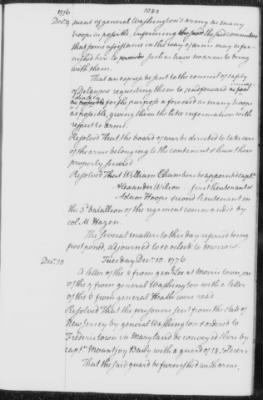 1776 1033
Dec. 9 ment of general Washington's army as many
troops as possible, informing the said committee
that some assistance in the way of arms may be fur-
nished him to such as have no arms to bring
with them.
That an express be sent to the council of safety
of Delaware requesting them to send forward
for the purpose a foresaid as many troops
as possible, giving them the like information with
respect to arms.
Resolved That the board of war be directed to take care
of the arms belonging to the continent & have them
properly
Resolved That William Chambers be appointed capt.
Alexander Wilson first lieutenant &
Adam Hoops second lieutenant in
the 3d batallion of the regiment commanded by
col. M. Hazen.
The several matters to this day referred being
postponed, adjourned to 10 o clock to morrow.
Dec. 10 Tuesday Dec. 10. 1776
A letter of the 8 from gen. Lee at Morris town, one
of the 9 from general Washington with a letter
of the 8 from general Heath were read
Resolved That the prisoners sent from the state of
New Jersey by general Washington & ordered to
Frederic town in Maryland be conveyed there by
capt. Mountjoy Baily with a guard of 12 soldiers.
That the said guard be furnished with arms.